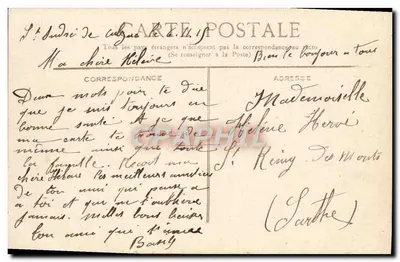 CARTE POSTALE
St André de le 6.11.15
Tous les pays étrangers n'acceptent pas la correspondance au recto
(Se renseigner à la Poste)
Ma chère Hélène Bien le bonjour a tous
CORRESPONDANCE
ADRESSE
Deux mots pour te dire
que je suis toujours en
bonne santé et je que
ma carte te de
même ainsi que toute
la famille Reçoit ma
chère Hélène les meilleurs amitiés
de ton ami qui pense a
toi et qui ne t'oublira
jamais. milles bons baisers
ton ami qui t'aime
Mademoiselle
Hélène Hervé
St Rémy des Monts
(Sarthe)